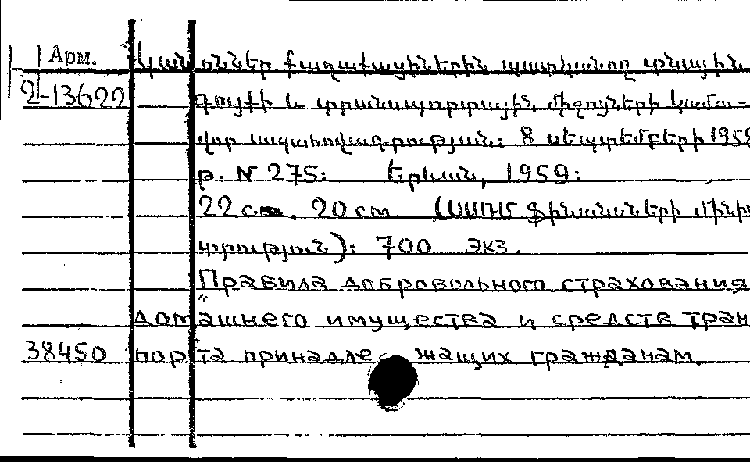 Арм. Կանոններ քաղաքացիներին պատկանող տնային
2-13622 գույքի և տրանսպորտային միջոցների կամա-
վոր ապահովագրության: 8 սեպտեմբերի 1958
թ. N 275: Երևան, 1959:
22 см. 20 см (ՍՍՀՄ ֆինանսների մինիս
տրություն): 700 экз.
Правила добровольного страхования
домашнего имущества и средств тран
38450 порта принадлежащих гражданам.